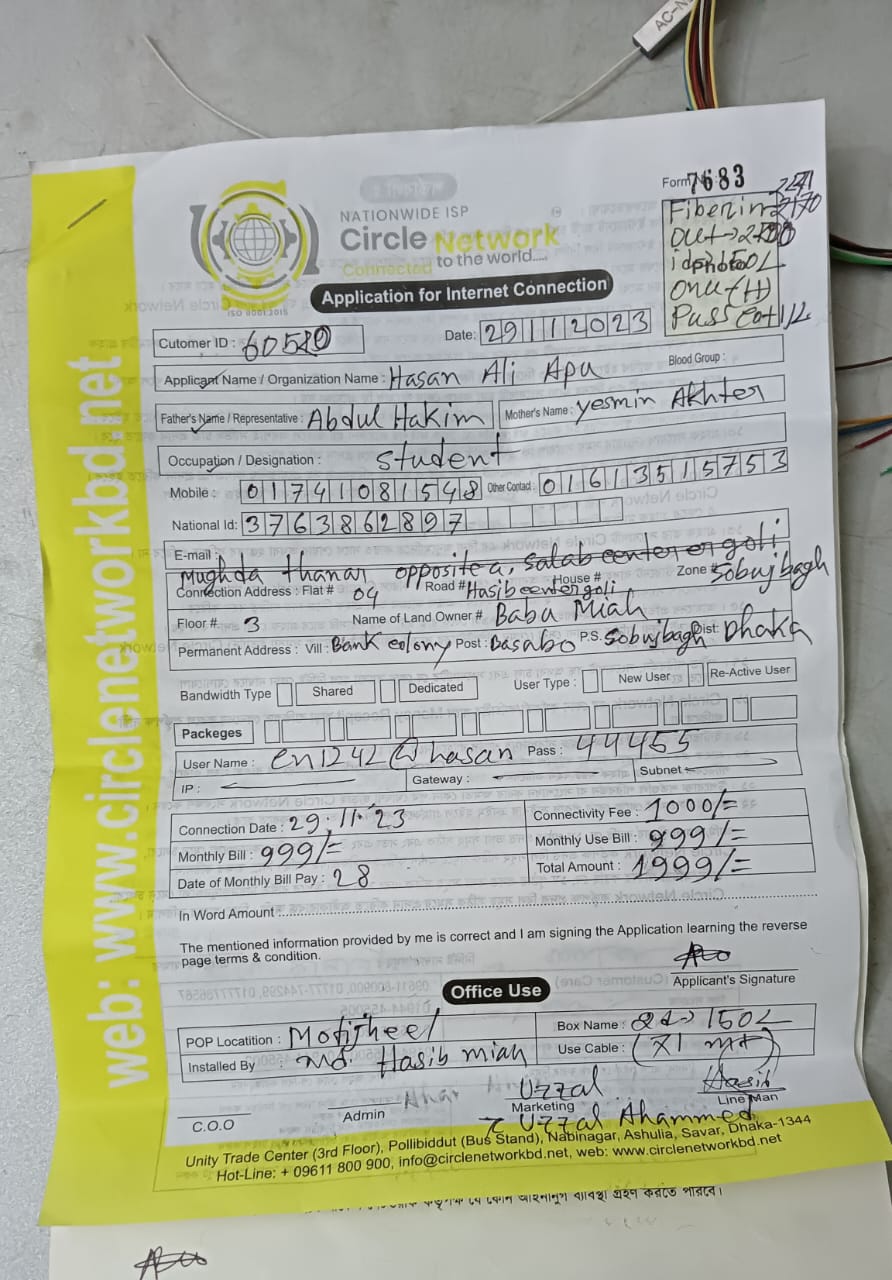 AC-N
Form 7683
Fiberim 2170
Out→2
id→150L
Photo
Onu-(H)
NATIONWIDE ISP
Circle Network
Connected to the world.....
ISO 9001:2015
Application for Internet Connection
web: www.circlenetworkbd.net
Cutomer ID :
Date: 29112023
Applicant Name / Organization Name : Hasan Ali Apu Blood Group :
Father's Name / Representative : Abdul Hakim Mother's Name : yesmin Akhter
Occupation / Designation : student
Mobile : 01741081548 Other Contact 01613515753
National Id: 3763862897
E-mail :
Mughda thanar opposite a, salab center er goli
Connection Address : Flat# 04 Road # Hasib center goli House # Zone # Sobujbagh
Floor # 3 Name of Land Owner # Baba Miah
Permanant Address : Vill : Bank colony Post : Basabo P.S. Sobujbagh Dist: Dhaka
Bandwidth Type Shared Dedicated User Type : New User Re-Active User
Packeges
User Name : cn1242@hasan Pass : 44455
IP : Gateway : Subnet
Connection Date : 29.11.23 Connectivity Fee : 1000/=
Monthly Bill : 999/= Monthly Use Bill : 999/=
Date of Monthly Bill Pay : 28 Total Amount : 1999/=
In Word Amount
The mentioned information provided by me is correct and I am signing the Application learning the reverse
page terms & condition.
Applicant's Signature
Office Use
POP Locatition : Motijheel Box Name : 150L
Installed By : Md. Hasib miah Use Cable : (71 mt)
Uzzal Hasib
C.O.O Admin Marketing Line Man
Uzzal Ahammed
Unity Trade Center (3rd Floor), Pollibiddut (Bus Stand), Nabinagar, Ashulia, Savar, Dhaka-1344
Hot-Line: + 09611 800 900, info@circlenetworkbd.net, web: www.circlenetworkbd.net